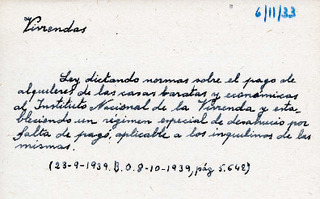 6/11/33
Viviendas
Ley dictando normas sobre el pago de
alquileres de las casas baratas y económicas
al Instituto Nacional de la Vivienda y esta-
bleciendo un régimen especial de desahucio por
falta de pago, aplicable a los inquilinos de las
mismas.
(23-9-1939. B.O. 8-10-1939, pág 5.642)